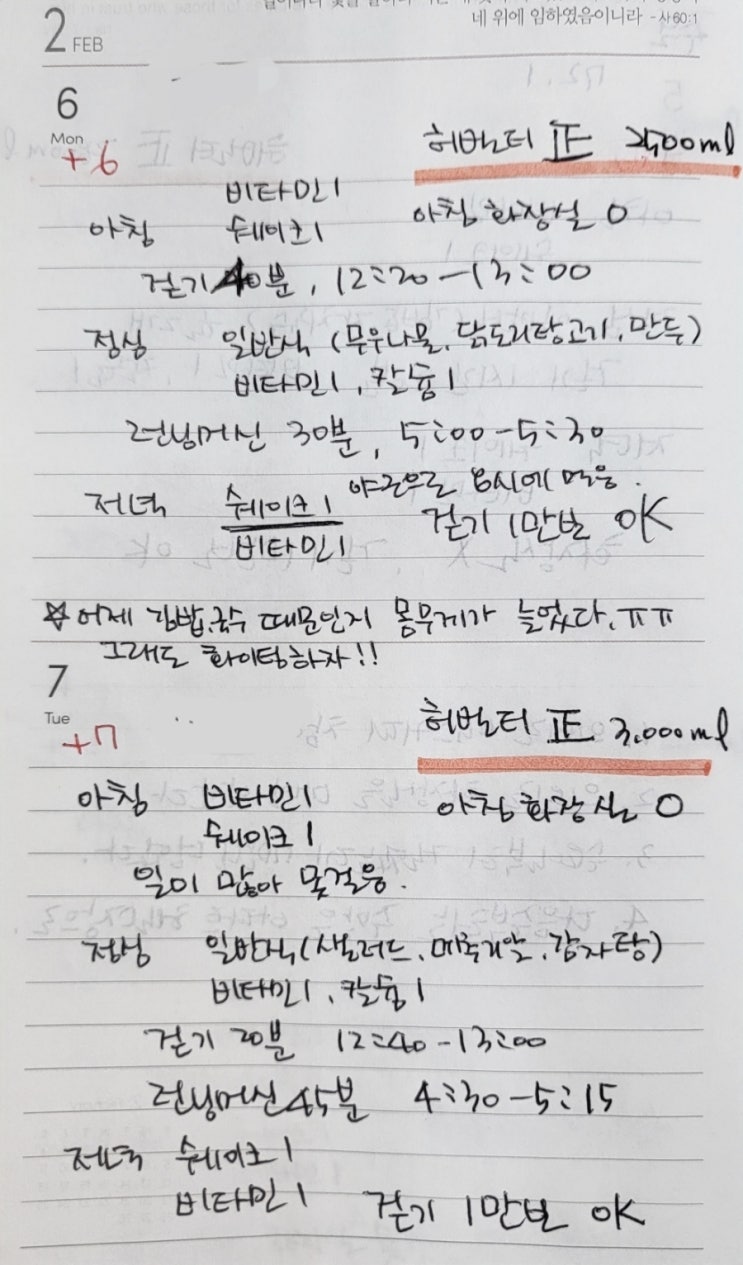 네 위에 임하였음이니라 -사60:1
2 FEB
6
Mon
+6
허벌터 正 2,500ml
비타민1
아침 쉐이크1 아침 화장실 O
걷기 40분, 12:20-13:00
점심 일반식 (무우나물, 닭도리탕고기, 만두)
비타민1, 칼슘1
런닝머신 30분, 5:00-5:30
저녁 쉐이크1 야근으로 8시에 먹음.
비타민1 걷기 1만보 OK
☆ 어제 김밥, 국수 때문인지 몸무게가 늘었다. ㅠㅠ
그래도 화이팅하자!!
7
Tue
+7
허벌터 正 3.000ml
아침 비타민1 아침 화장실 O
쉐이크1
일이 많아 못걸음.
점심 일반식(샐러드, 메추리알, 감자탕)
비타민1, 칼슘1
걷기 20분 12:40-13:00
런닝머신 45분 4:30-5:15
저녁 쉐이크1
비타민1 걷기 1만보 OK